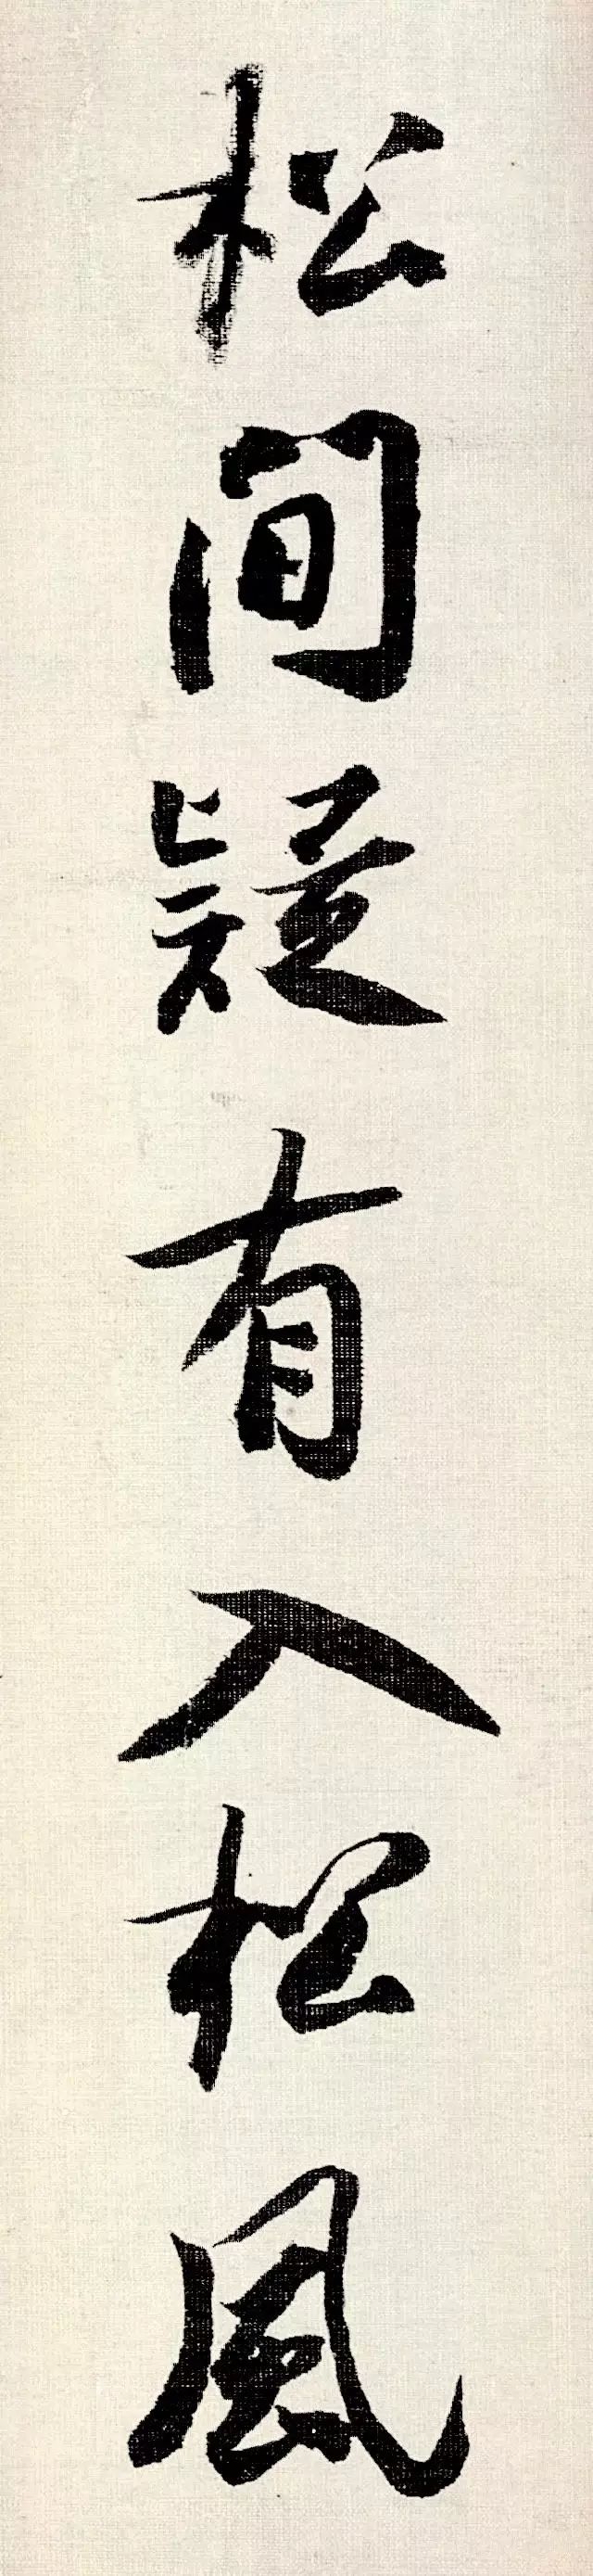 松間疑有入松風